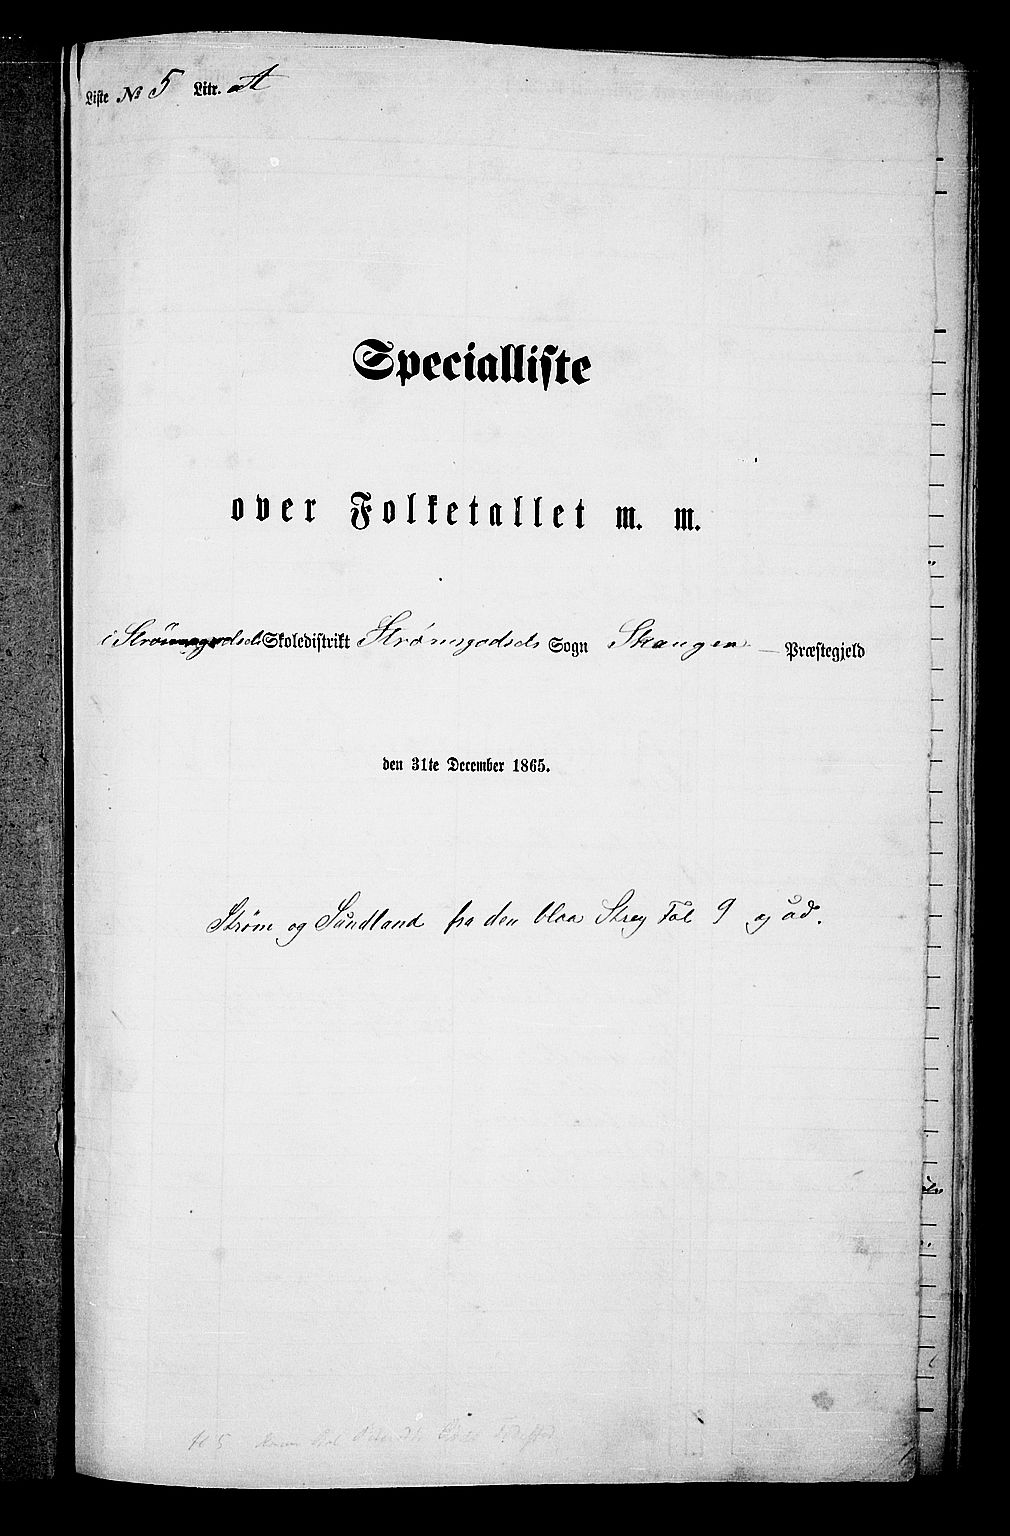 Liste No 5 Litr. A
Specialliste
over Folketallet m. m.
i Strømsgodsets Skoledistrikt Strømsgodsets Sogn Skauger Præstegjeld
den 31te December 1865.
Strøm og Sundland fra den blaa Streg Fol 9 og ud.
No 5